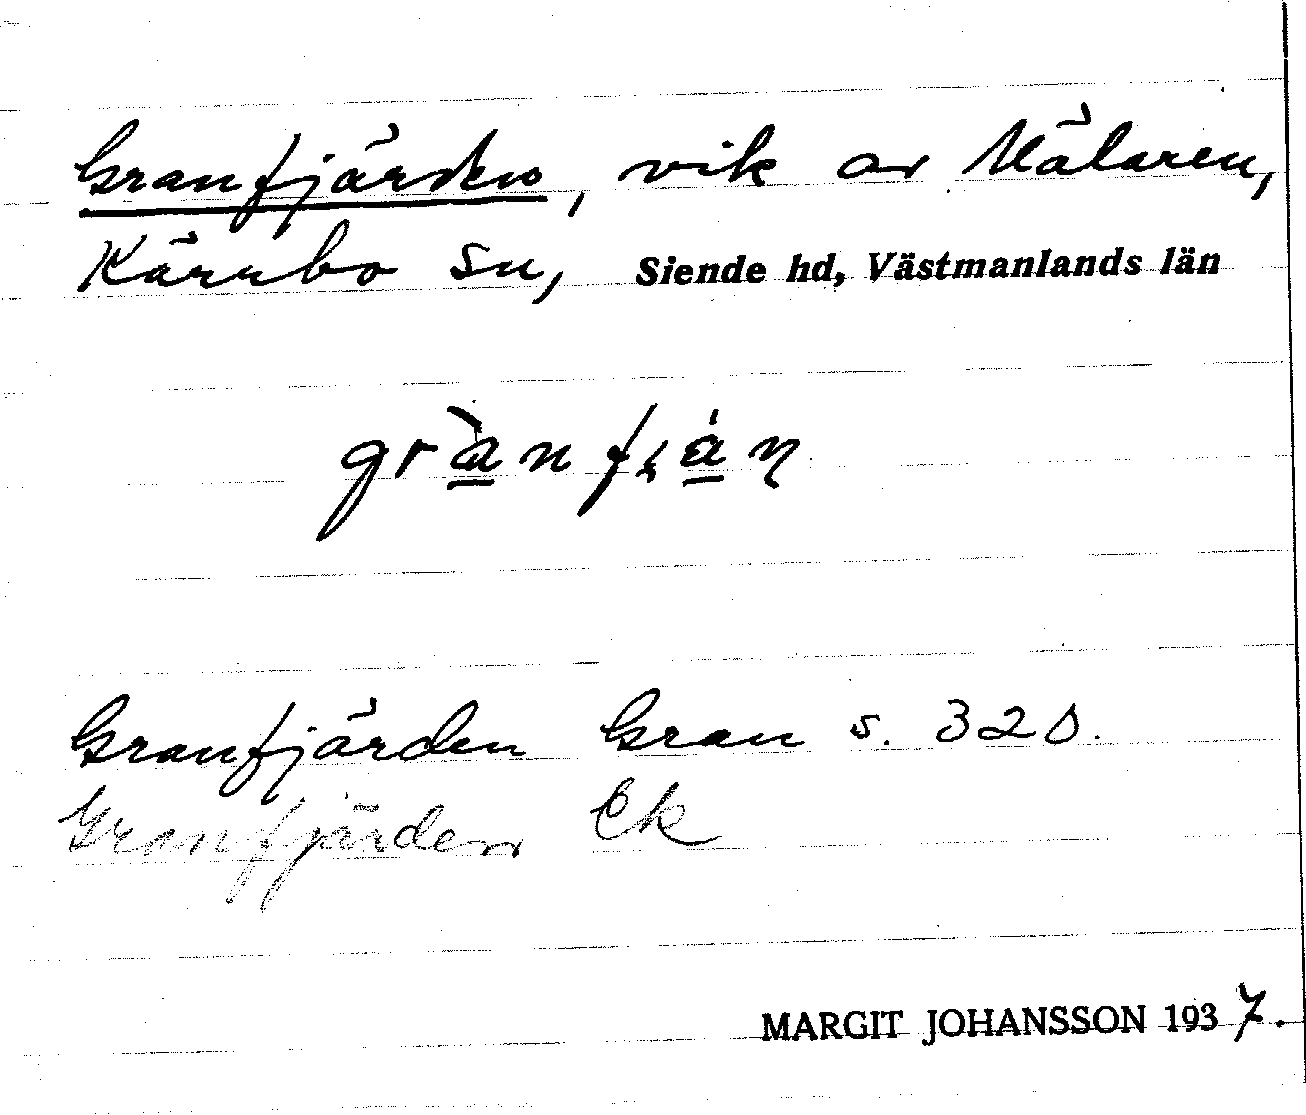 Granfjärden, vik av Mälaren,
Kärrbo sn, Siende hd, Västmanlands län
Granfjärden Gran s. 320.
Granfjärden Ek
MARGIT JOHANSSON 1937.